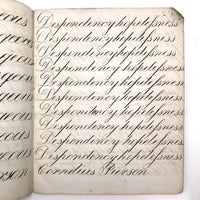 Despondencyhopeleſsness
Despondencyhopeleſsness
Despondencyhopeleſsness
Despondencyhopeleſsness
Despondencyhopeleſsness
Despondencyhopeleſsness
Despondencyhopeleſsness
Despondencyhopeleſsness
Despondencyhopeleſsness
Cornelius Pierson